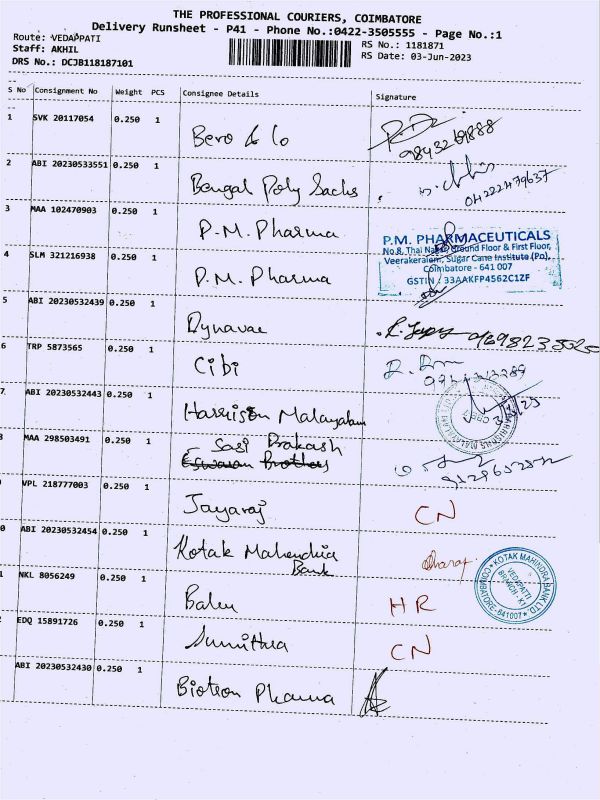 THE PROFESSIONAL COURIERS, COIMBATORE
Delivery Runsheet - P41 - Phone No.:0422-3505555 - Page No.:1
Route: VEDAPATI
Staff: AKHIL
DRS No.: DCJB118187101
RS No.: 1181871
RS Date: 03-Jun-2023
S No Consignment No Weight PCS Consignee Details Signature
1 SVK 20117054 0.250 1 Bero & Co
9843269888
2 ABI 20230533551 0.250 1 Bengal Poly Sacks
04222479637
3 MAA 102470903 0.250 1 P.M. Pharma
P.M. PHARMACEUTICALS
No.8, Thai Nagar, Ground Floor & First Floor,
Veerakeralam, Sugar Cane Institute (Po),
Coimbatore - 641 007
GSTIN : 33AAKFP4562C1ZF
4 SLM 321216938 0.250 1 P.M. Pharma
5 ABI 20230532439 0.250 1 Dynavac
6 TRP 5873565 0.250 1 Cibi
7 ABI 20230532443 0.250 1 Harrision Malayalam
8 MAA 298503491 0.250 1 Sasi Prakash
Eswaran Brothers
9 VPL 218777003 0.250 1 Jayaraj CN
0 ABI 20230532454 0.250 1 Kotak Mahendira
Bank
KOTAK MAHINDRA BANK LTD.
VEDAPATTI
BRANCH
COIMBATORE-641007
1 NKL 8056249 0.250 1 HR
2 EDQ 15891726 0.250 1 Sumithra CN
ABI 20230532430 0.250 1 Bioteon Pharma